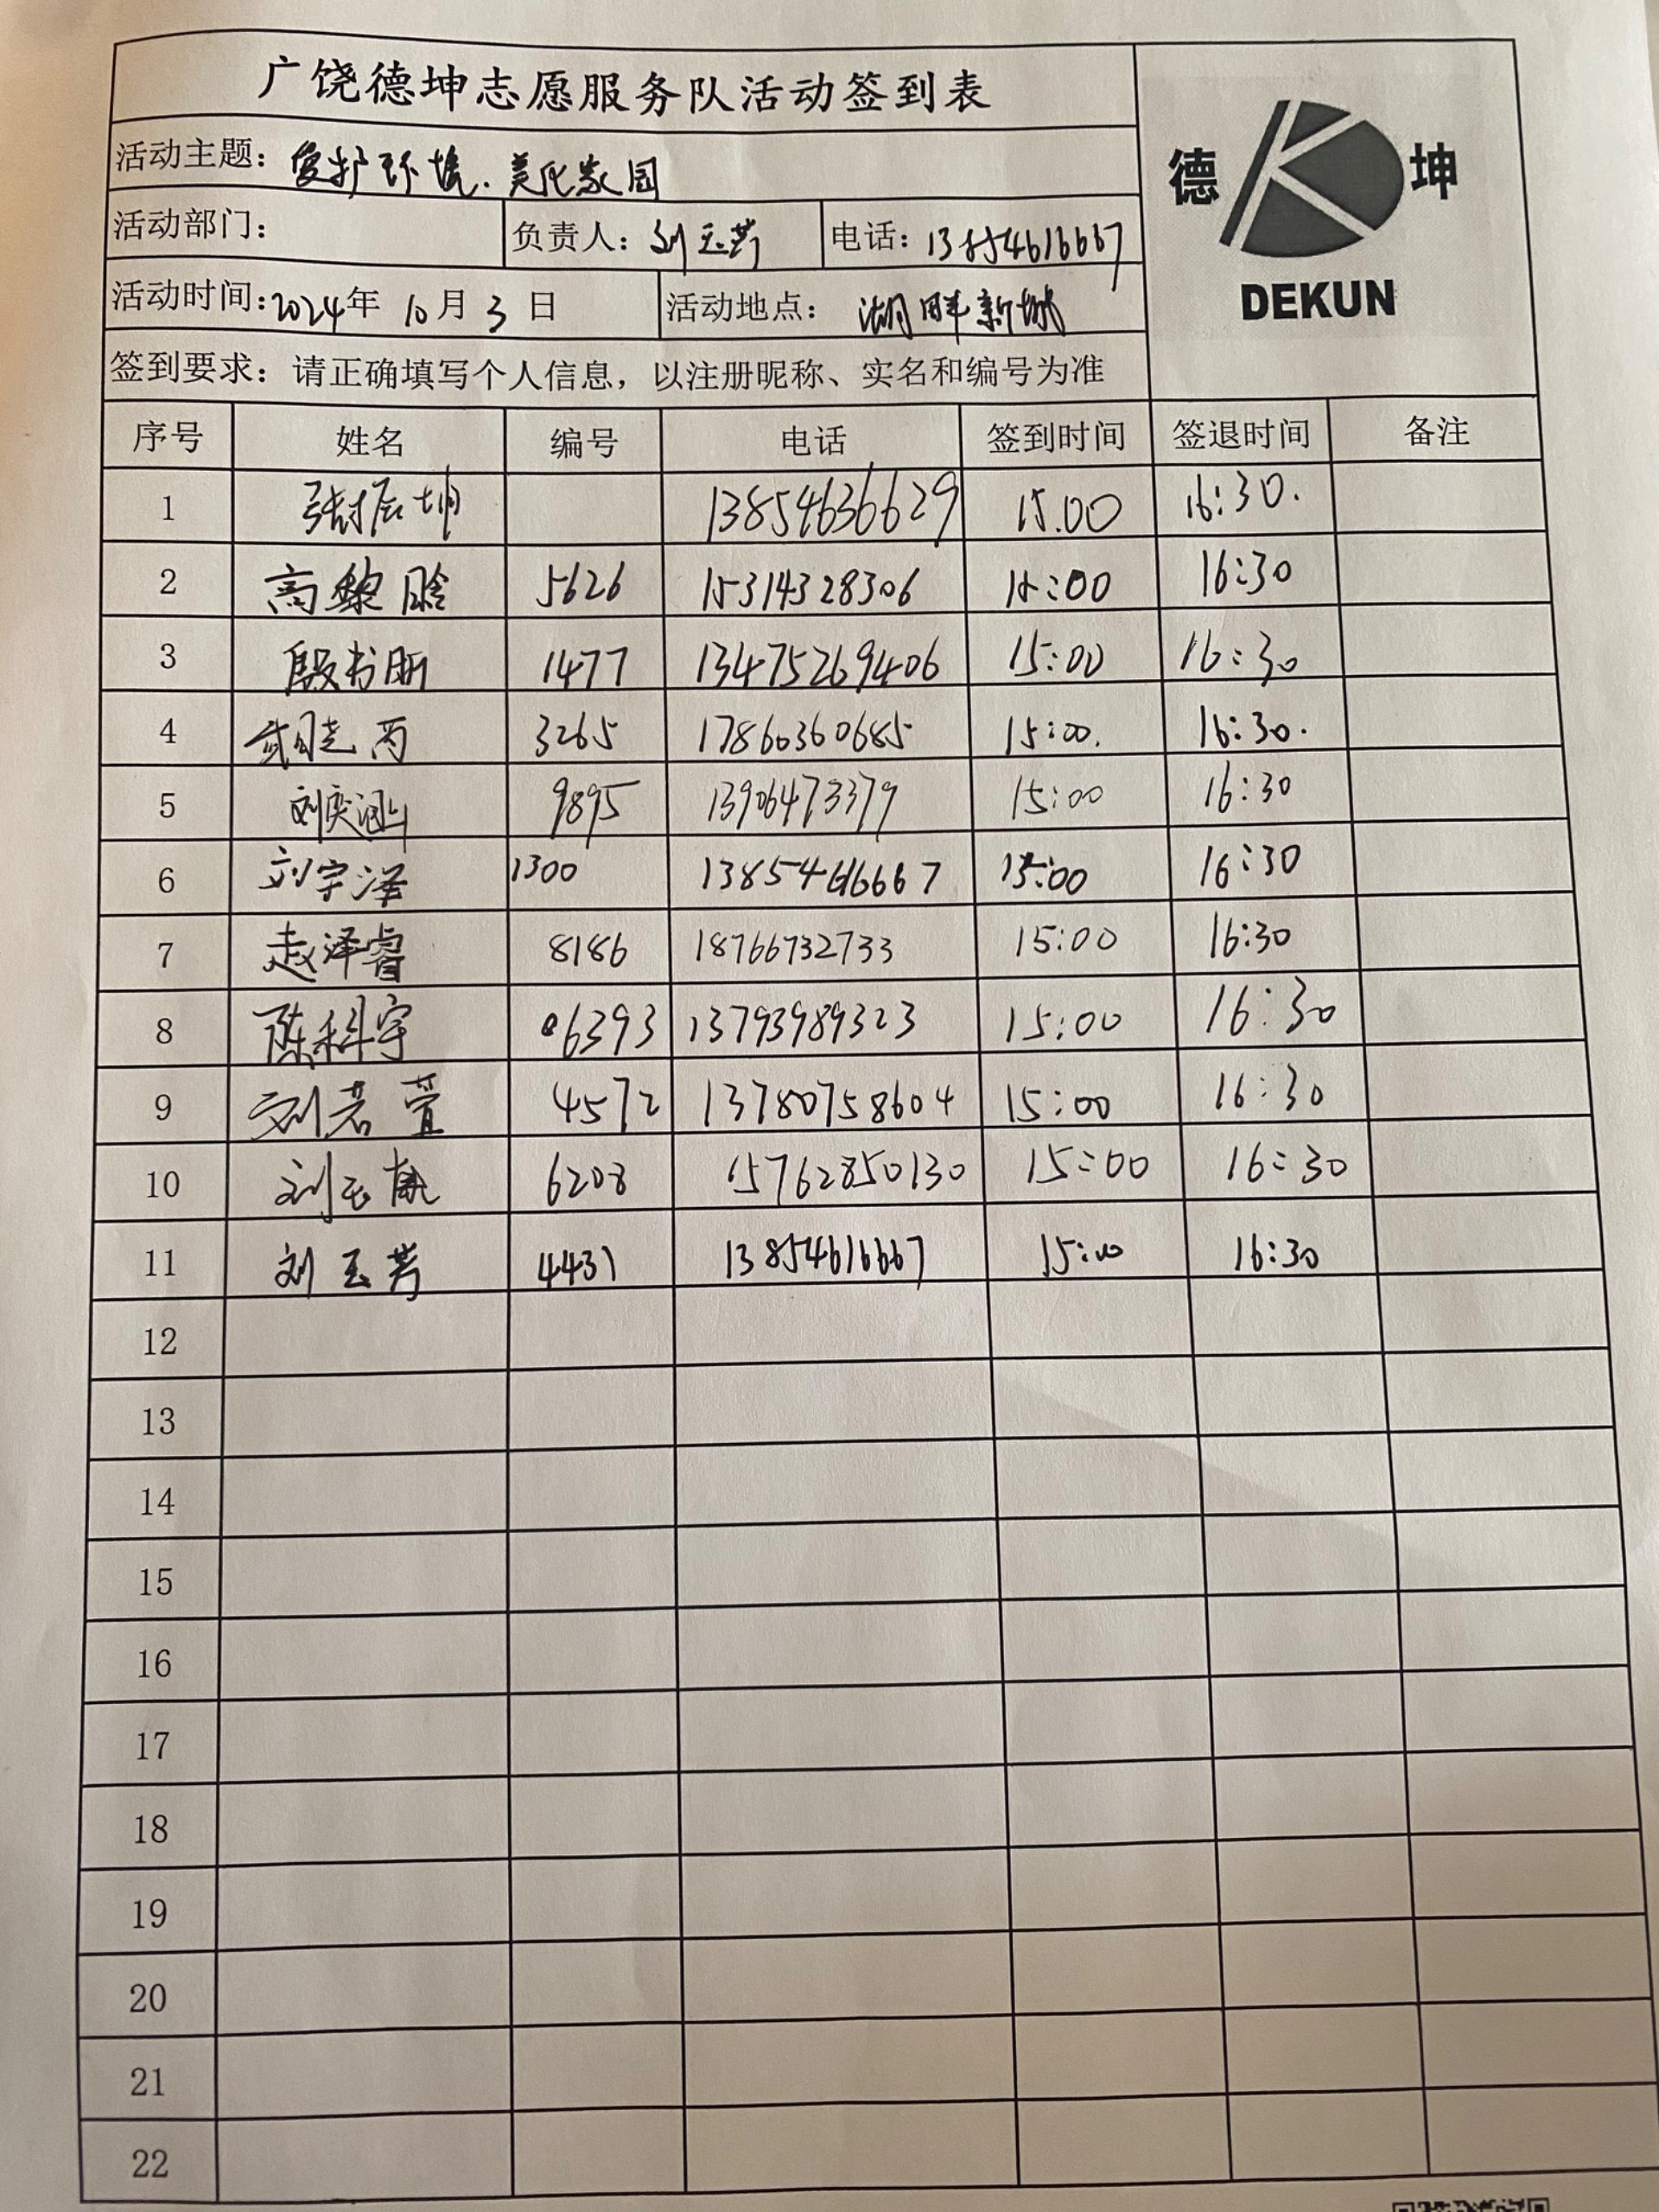 广饶德坤志愿服务队活动签到表
活动主题：爱护环境.美化家园
德 坤
DEKUN
活动部门： 负责人：刘玉芳 电话：13854616667
活动时间：2024年 10月 3 日 活动地点：湖畔新城
签到要求：请正确填写个人信息，以注册昵称、实名和编号为准
序号 姓名 编号 电话 签到时间 签退时间 备注
1 13854636629 15.00 16:30.
2 5626 15314328306 15:00 16:30
3 1477 13475269406 15:00 16:30
4 3265 17860360685 15:00. 16:30.
5 刘奕涵 9895 13906473379 15:00 16:30
6 刘宇泽 1300 13854616667 15:00 16:30
7 赵泽睿 8186 18766732733 15:00 16:30
8 陈科宇 06393 13793989323 15:00 16:30
9 刘若萱 4572 13780758604 15:00 16:30
10 6208 15762850130 15:00 16:30
11 刘玉芳 4431 13854616667 15:00 16:30
12
13
14
15
16
17
18
19
20
21
22